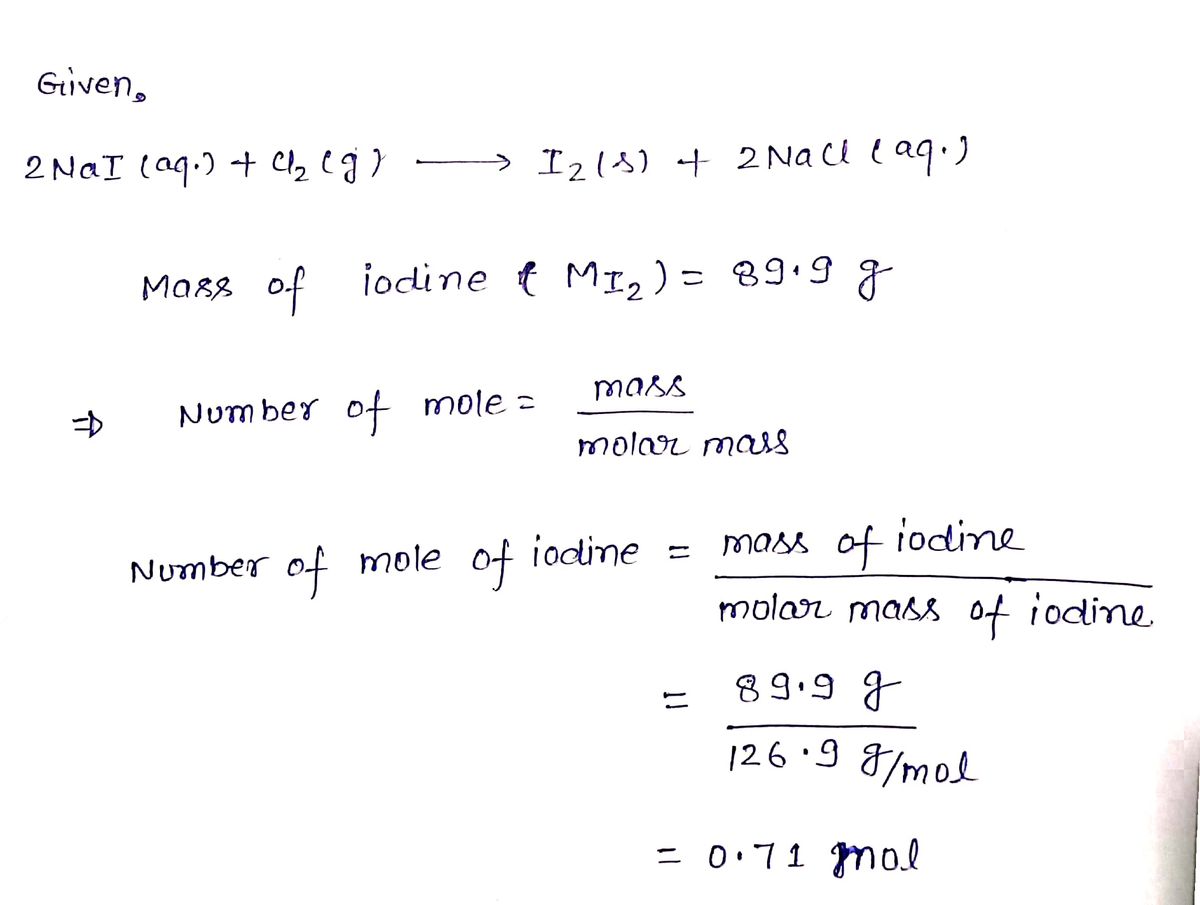 Given,
2 NaI (aq.) + Cl₂ (g) ⟶ I₂ (s) + 2 NaCl (aq.)
Mass of iodine ( M I₂ ) = 89.9 g
⇒ Number of mole = mass / molar mass
Number of mole of iodine = mass of iodine / molar mass of iodine
= 89.9 g / 126.9 g/mol
= 0.71 mol